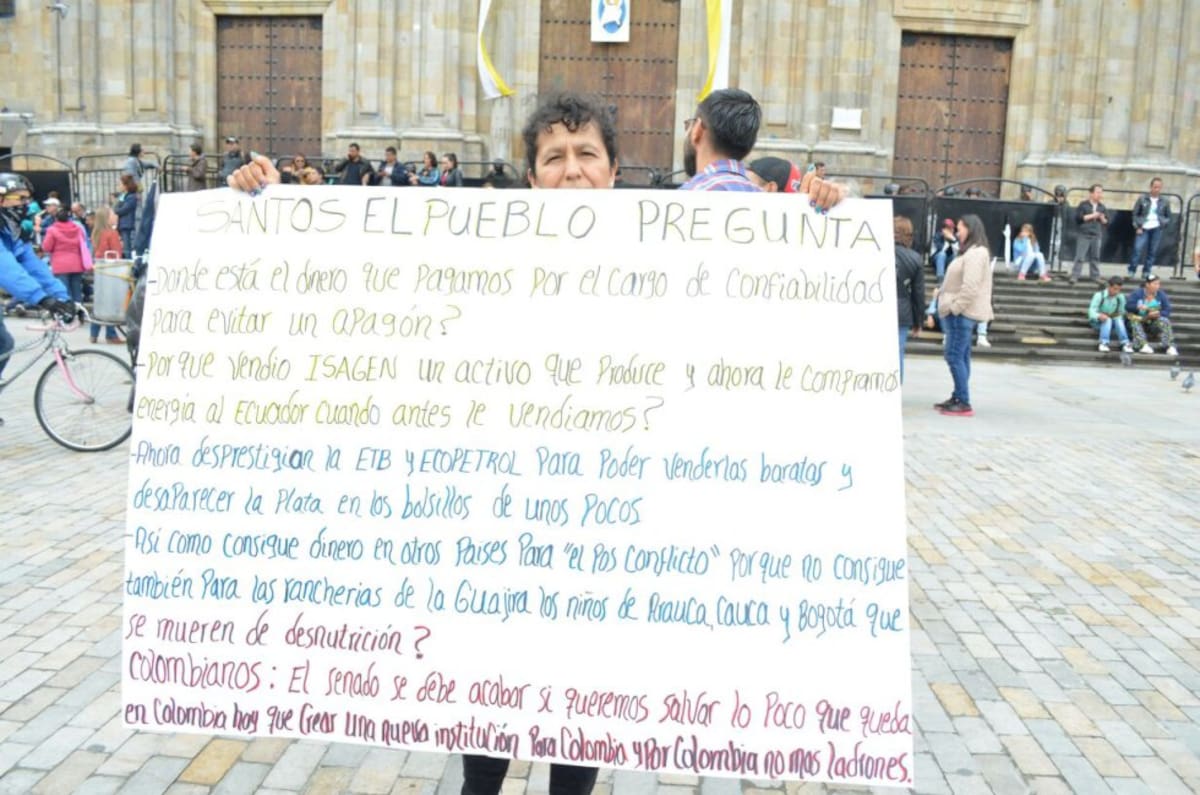 SANTOS EL PUEBLO PREGUNTA
-Donde está el dinero que pagamos por el cargo de confiabilidad
para evitar un apagón?
-Porque vendio ISAGEN un activo que Produce y ahora le compramos
energia al Ecuador cuando antes le vendiamos?
-Ahora desprestigian la ETB y ECOPETROL Para Poder venderlas baratas y
desaparecer la Plata en los bolsillos de unos Pocos
-Así como consigue dinero en otros Paises Para "el Pos Conflicto" Porque no consigue
también Para las rancherias de la Guajira los niños de Arauca, Cauca y Bogotá que
se mueren de desnutrición?
Colombianos: El senado se debe acabar si queremos salvar lo Poco que queda
en Colombia hay que Crear una nueva institución Para Colombia y Por Colombia no mas ladrones.